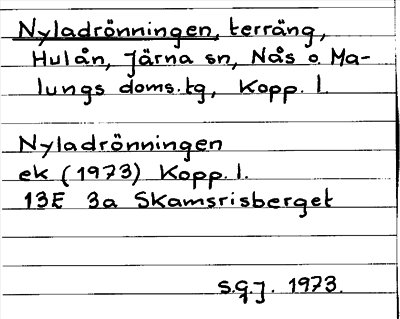 Nyladrönningen, terräng,
Hulån, Järna sn, Nås o Ma-
lungs doms.tg, Kopp. l.
Nyladrönningen
ek (1973) Kopp. l.
13E 3a Skamsrisberget
S.G.J. 1973.